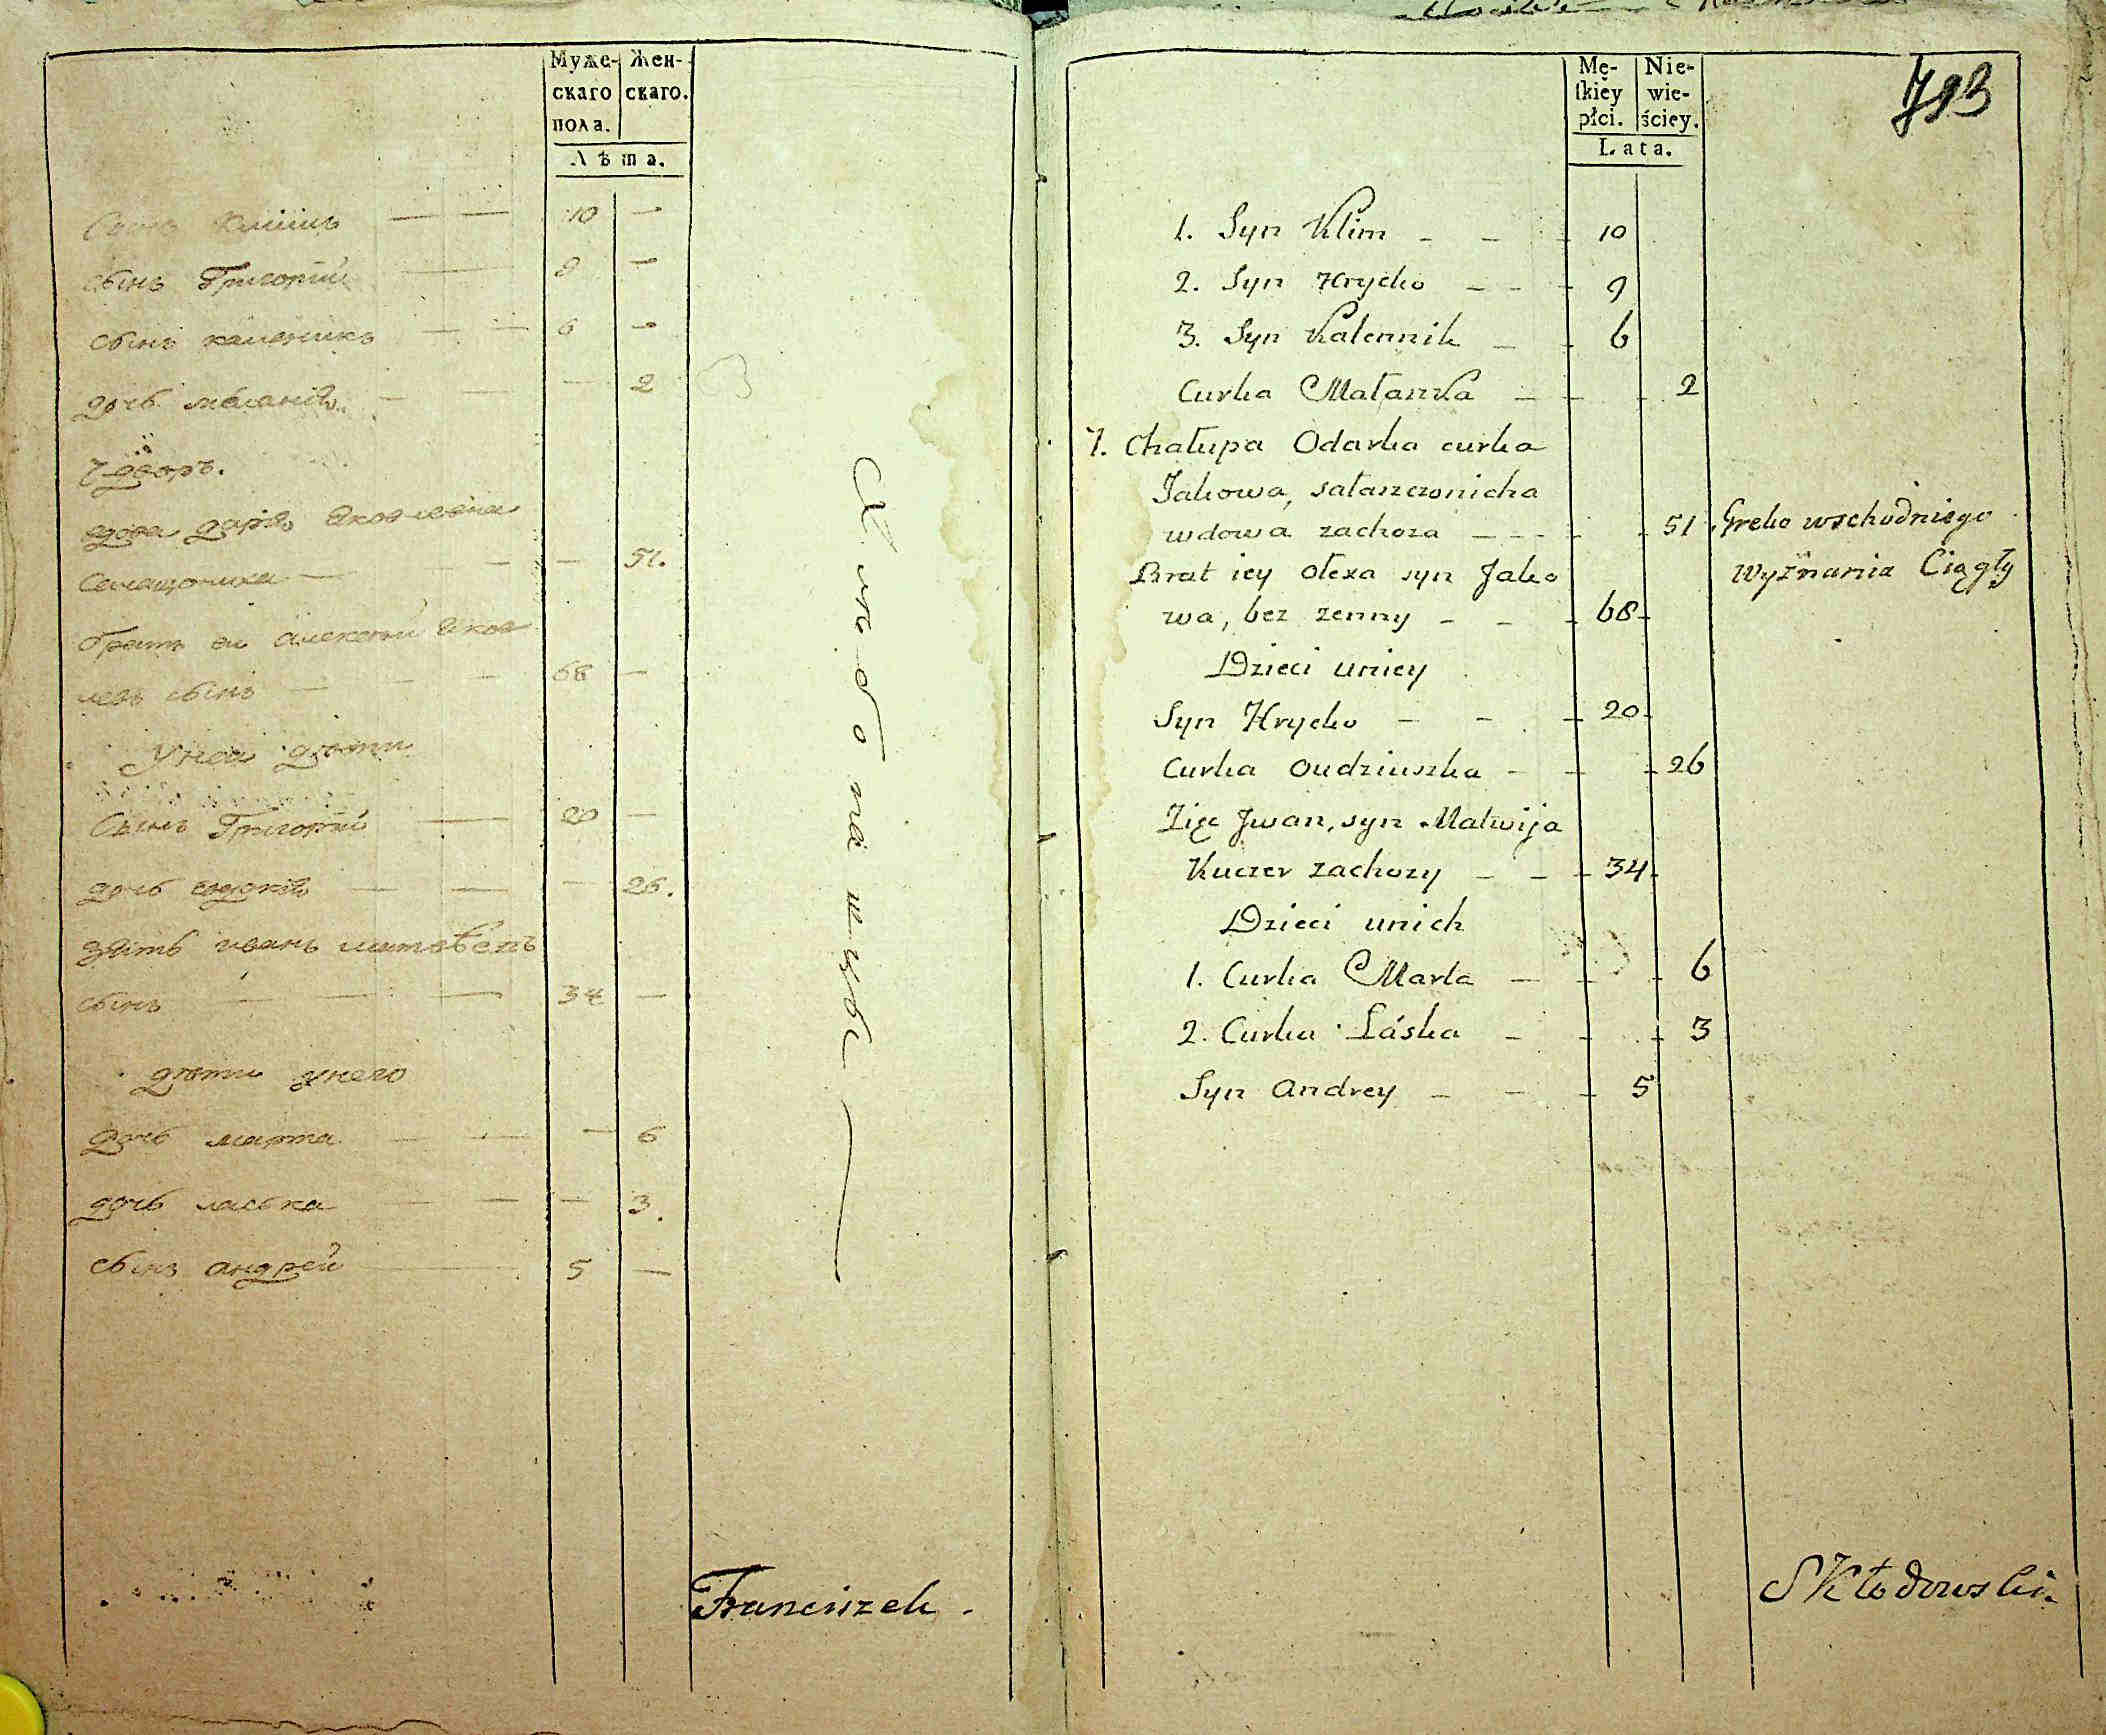 Муже- Жен-
скаго скаго.
пола.
Лѣта.
Сынъ Климъ — — 10 —
сынъ Григорій — 9 —
сынъ каленикъ — — 6 —
дочь маланія — — — 2
7 дворъ.
вдова дарія Яковлевна
— — 51.
братъ ей алексѣй Яков
левъ сынъ — — — 68 —
Унея дѣти
Сынъ Григорій — 20 —
дочь — — — 26.
зять иванъ матвѣевъ
сынъ — — — 34 —
дѣти унего
Дочь марта — — — 6
дочь ласька — — — 3.
сынъ андрей — 5 —
Franciszek.
793
Mę- Nie-
skiey wie-
płci. ściey.
Lata.
1. Syn Klim — — - 10
2. Syn Hrycko — — - 9
3. Syn Kalennik — - 6
Curka Małanka — - - 2
7. Chałupa Odarka curka
Jakowa,
wdowa zachoza — - - - - 51 Greko wschodniego
Brat iey Ołexa syn Jako Wyznania Ciągły
wa, bez zenny — — - 68 -
Dzieci uniey
Syn Hrycko — — - 20 -
Curka Oudziuszka — - - 26
Zięc Jwan, syn Matwija
Kuczer zachozy — — - 34 -
Dzieci unich
1. Curka Marta — - - 6
2. Curka Láska — - - 3
Syn Andrey — — - 5
Skłodowski.